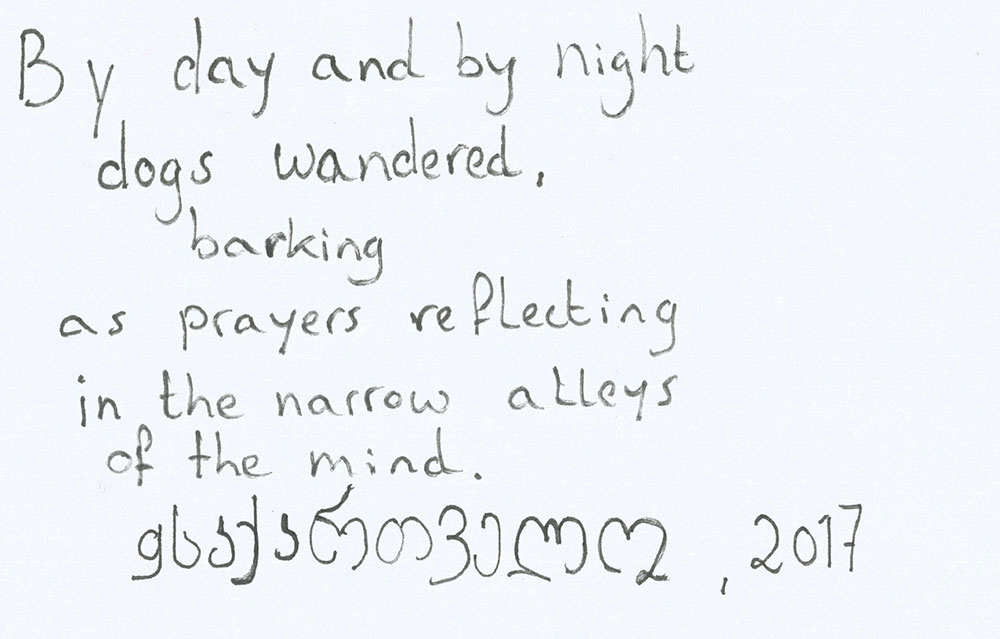 By day and by night
dogs wandered,
barking
as prayers reflecting
in the narrow alleys
of the mind.
, 2017